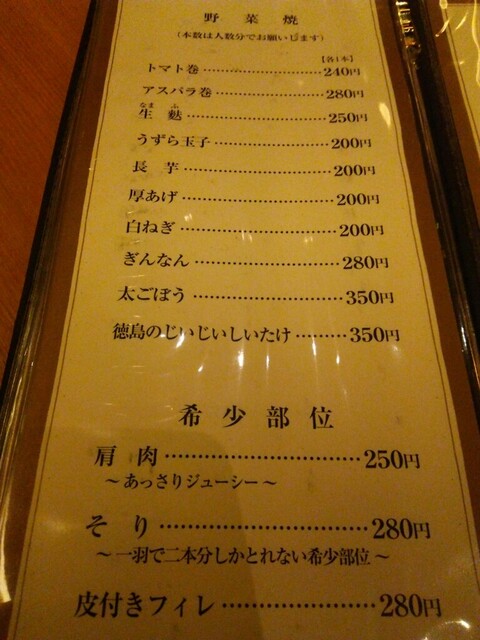 野菜焼
(本数は人数分でお願いします)
【各1本】
トマト巻……………………240円
アスパラ巻……………………280円
なま ふ
生麩……………………250円
うずら玉子……………………200円
長芋……………………200円
厚あげ……………………200円
白ねぎ……………………200円
ぎんなん……………………280円
太ごぼう……………………350円
徳島のじいじいしいたけ………350円
希少部位
肩肉……………………………250円
～あっさりジューシー～
そり……………………………280円
～一羽で二本分しかとれない希少部位～
皮付きフィレ……………………280円